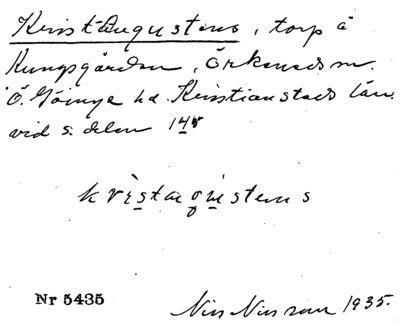 Krist Augustens, torp å
Kungsgården, Örkeneds sn.
Ö. Göinge hd. Kristianstads län.
vid s. delen 148
kristaqustens
Nr 5435
Nils Nilsson 1935.